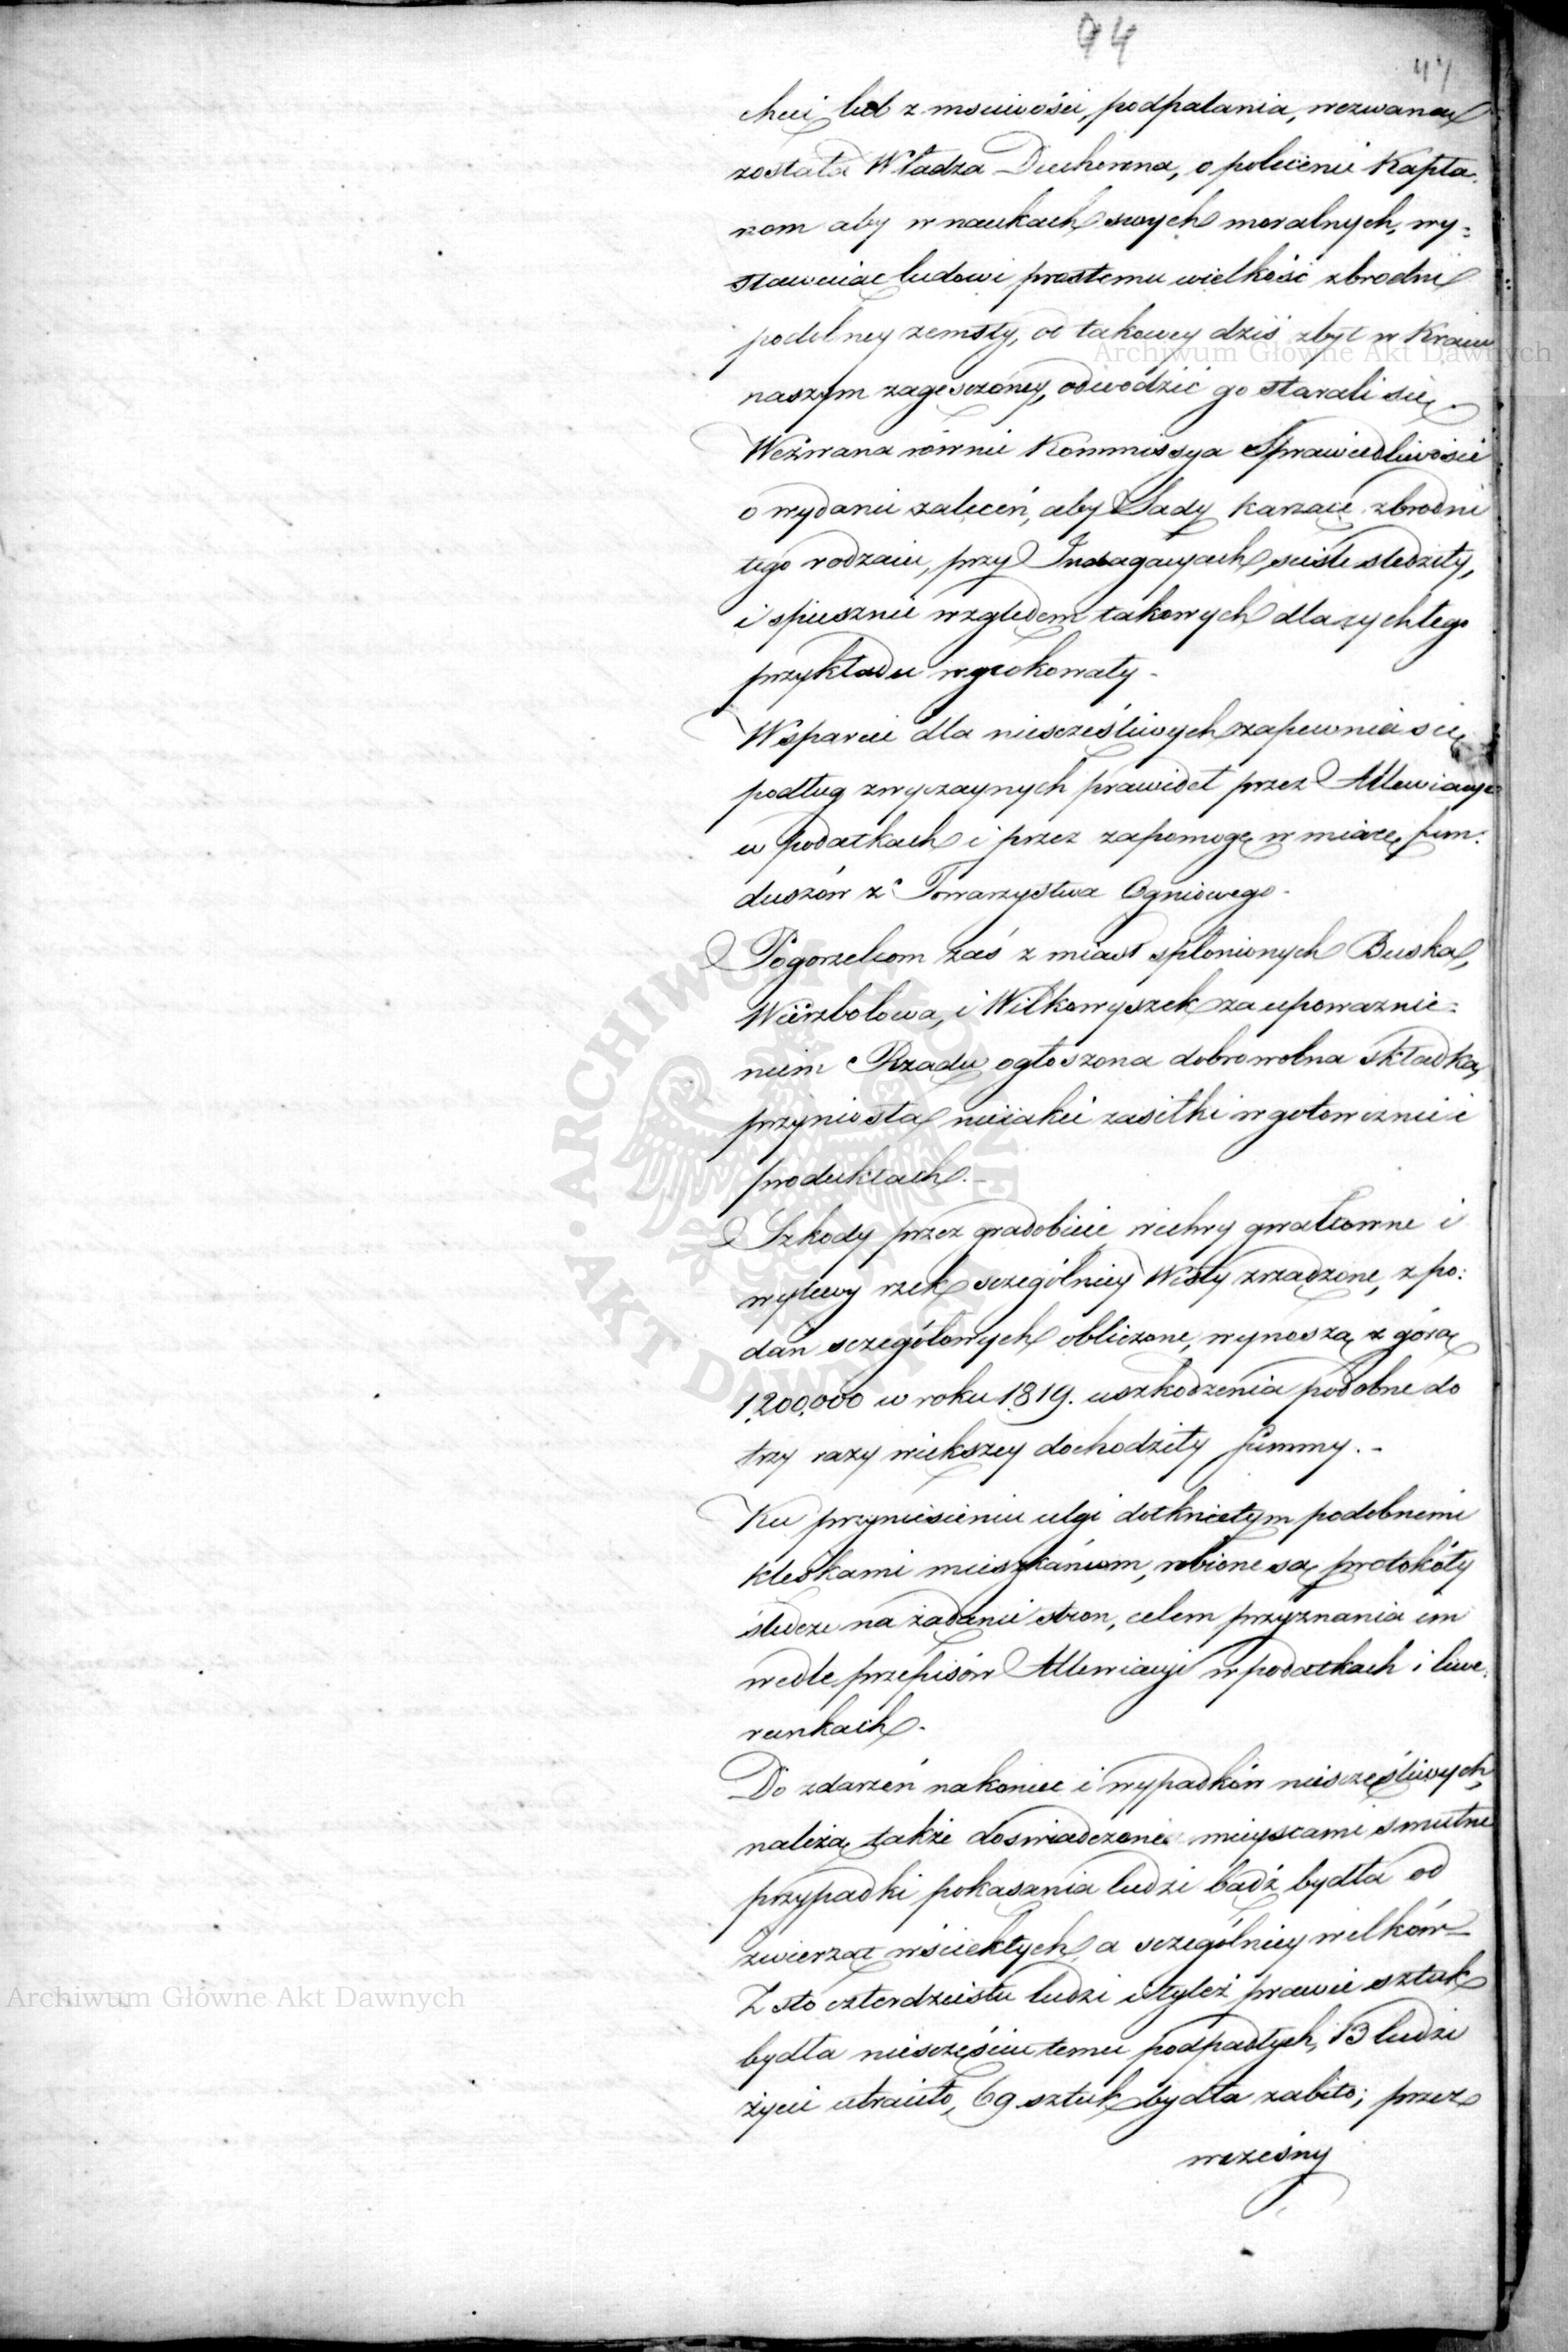 94
47
chęci lub z mściwości podpalania, wezwaną
została Władza Duchowna, o polecenie Kapła-
nom aby w naukach swych moralnych, wy-
stawując ludowi prostemu wielkość zbrodni
podobney zemsty, od takowey dziś zbyt w Kraiu
naszym zagęsczoney, odwodzić go starali się.
Wezwana równie Kommissya Sprawiedliwości
o wydanie zaleceń, aby Sądy karzące zbrodni
tego rodzaiu, przy Indagacyach, ściśle śledziły,
i spiesznie względem takowych dla rychłego
przykładu wyrokowały.
Wsparcie dla niesczęśliwych zapewnia się
podług zwyczaynych prawideł przez Allewiacye
w podatkach i przez zapomogę w miarę fun-
duszów z Towarzystwa Ogniowego.
Pogorzelcom zaś z miast spłonionych Buska,
Wierzbołowa, i Wiłkowyszek za upoważnie-
niem Rządu ogłoszona dobrowolna składka,
przyniosła nieiakie zasiłki w gotowiznie i
produktach.
Szkody przez gradobicie wichry gwałtowne i
wylewy rzek sczególniey Wisły zrządzone, z po-
dań sczegółowych obliczone, wynoszą z górą
1,200,000 w roku 1819. uszkodzenia podobne do
trzy razy większey dochodziły summy.
Ku przyniesieniu ulgi dotkniętym podobnemi
klęskami mieszkańcom, robione są protokóły
śledcze na żądanie stron, celem przyznania im
wedle przepisów Allewiacyi w podatkach i liwe-
runkach.
Do zdarzeń nakoniec i wypadków niesczęśliwych,
należą także doświadczone mieyscami smutne
przypadki pokąsania ludzi bądź bydła od
zwierząt wściekłych, a sczególniey wilków.
Z sto czterdziestu ludzi i tyleż prawie sztuk
bydła niesczęściu temu podpadłych, 13 ludzi
życie utraciło, 69 sztuk bydła zabito; przez
wczesny
Archiwum Główne Akt Dawnych
Archiwum Główne Akt Dawnych
ARCHIWUM GŁÓWNE AKT DAWNYCH